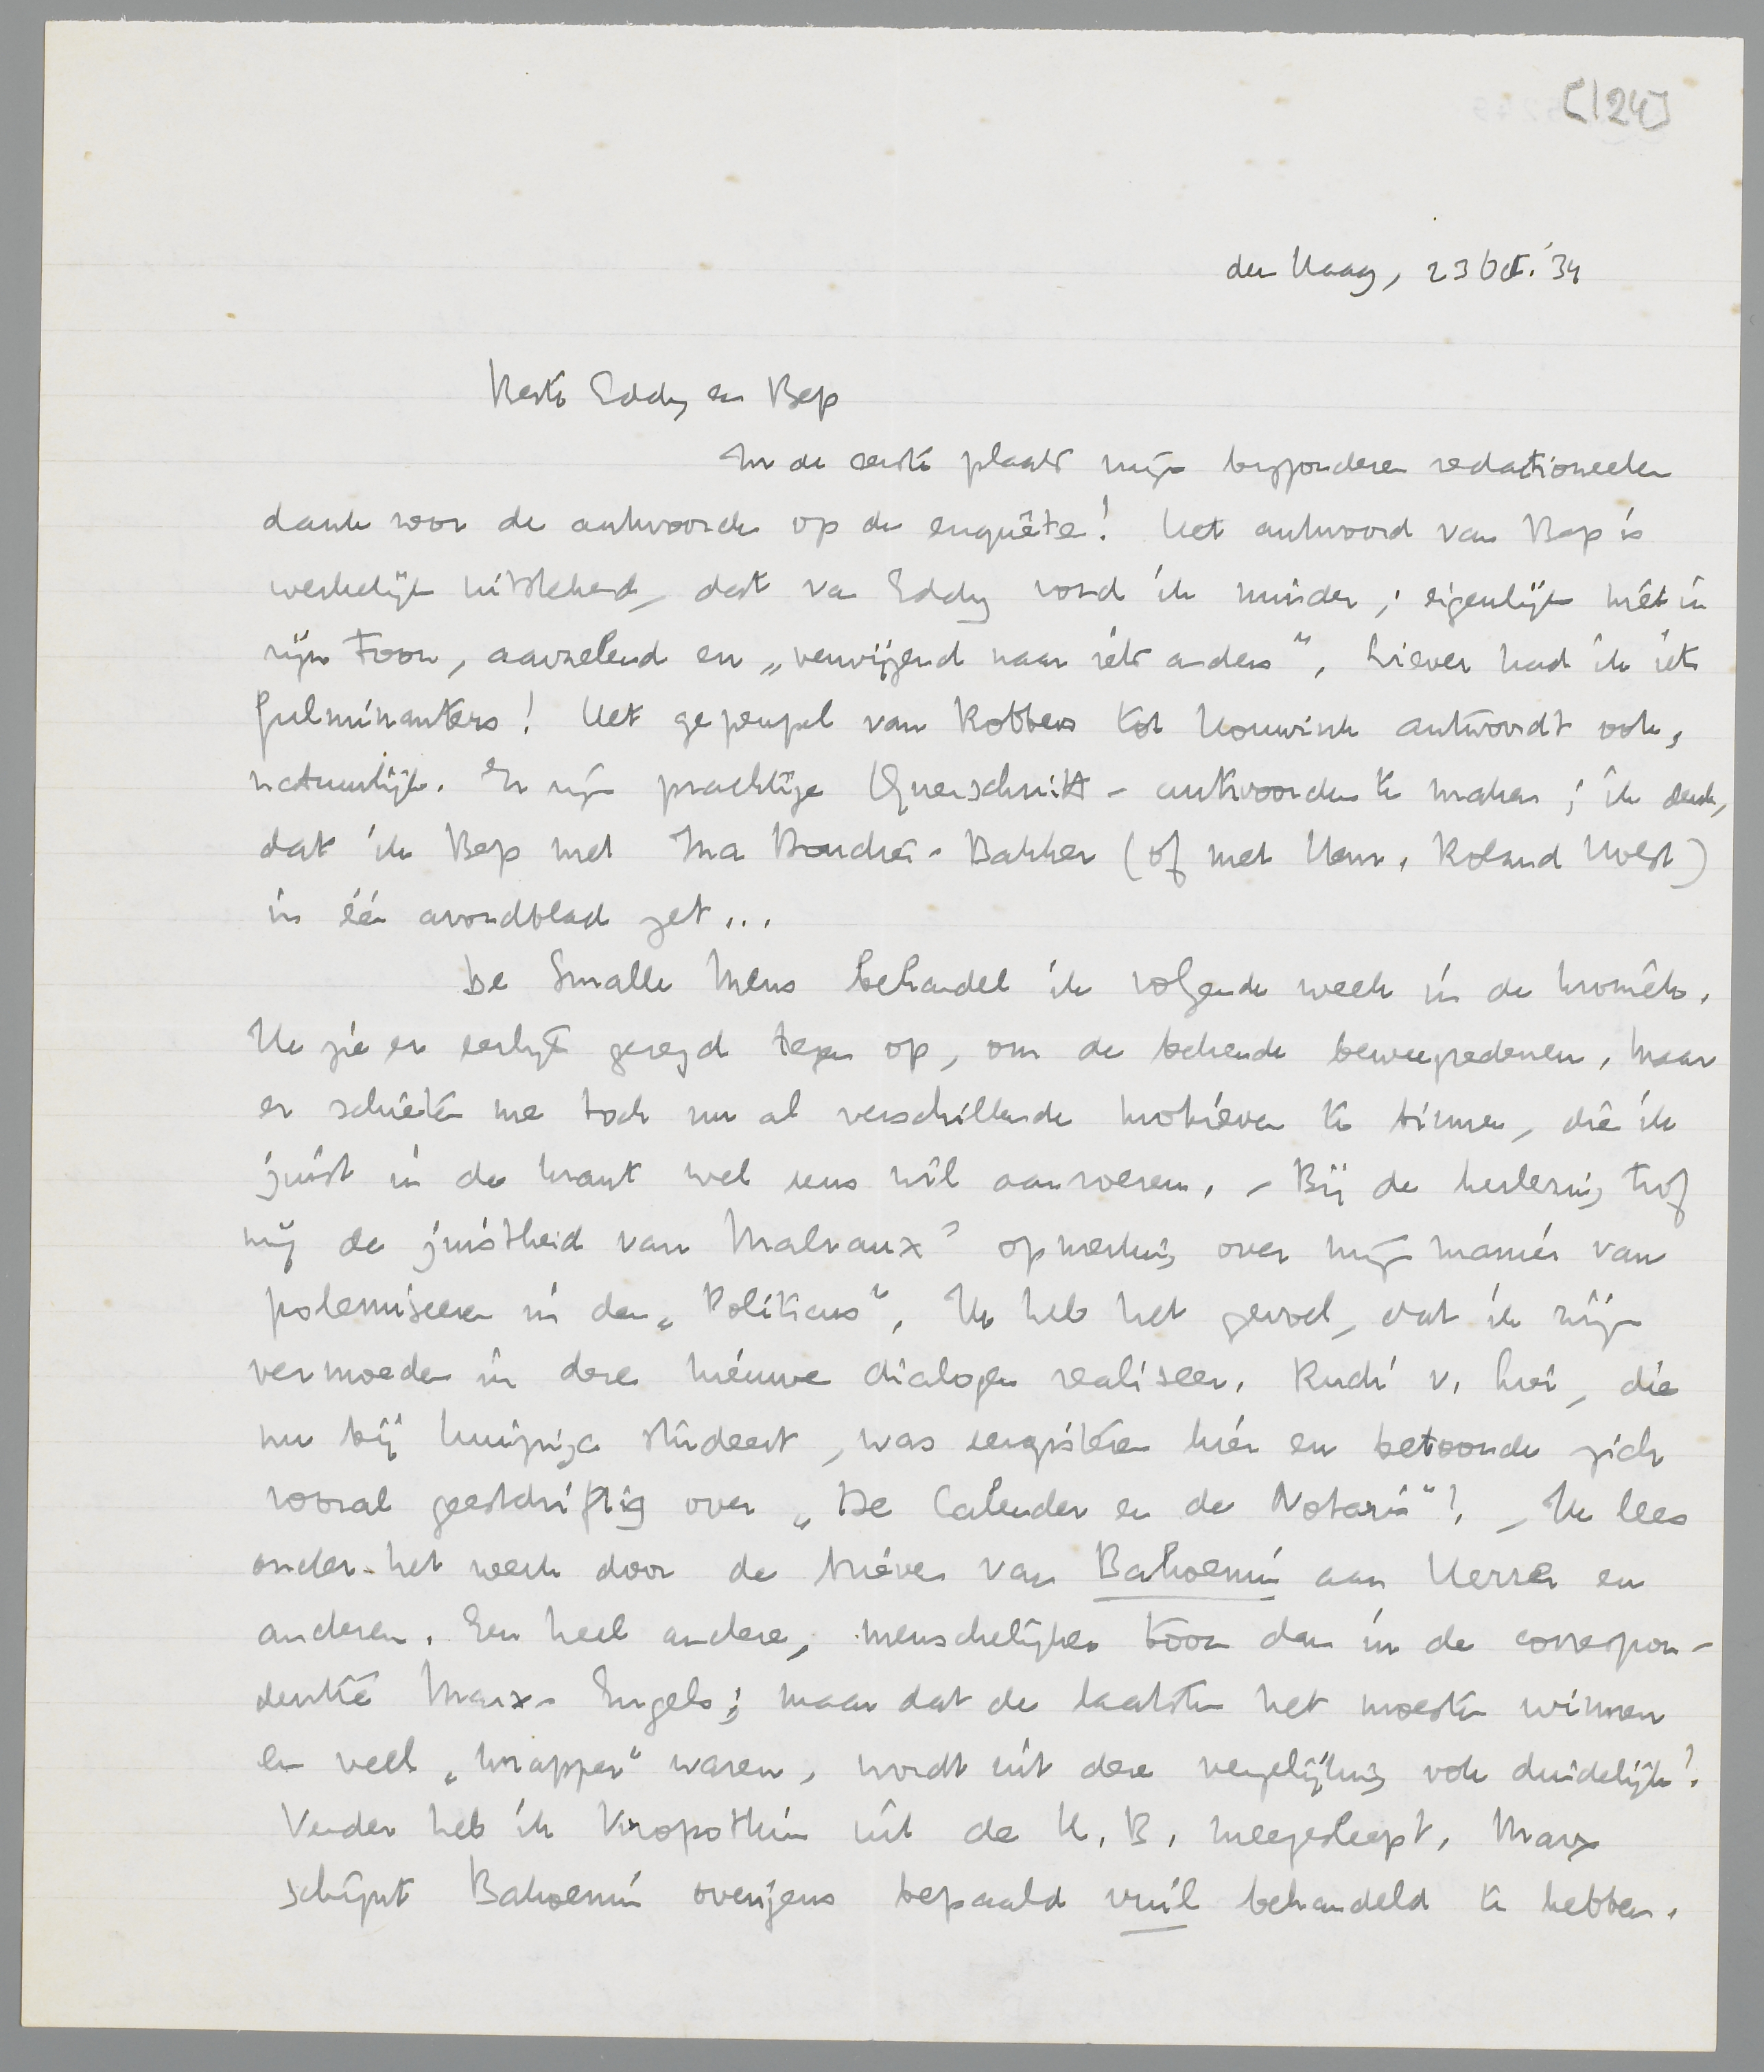 [124]
den Haag, 23 Oct. '34
Beste Eddy en Bep
In de eerste plaats mijn bijzonderen redactioneelen
dank voor de antwoorden op de enquête! Het antwoord van Bep is
werkelijk uitstekend, dat van Eddy vond ik minder; eigenlijk niet in
zijn toon, aarzelend en „verwijzend naar iets anders”. Liever had ik iets
fulminanters! Het gepeupel van Robbers tot Houwink antwoordt ook,
natuurlijk. Er zijn prachtige Querschnitt-antwoorden te maken; ik denk,
dat ik Bep met Ina Boudier-Bakker (of met Henr. Roland Holst)
in één avondblad zet...
De Smalle Mens behandel ik volgende week in de kroniek.
Ik zie er eerlijk gezegd tegen op, om de bekende beweegredenen, maar
er schieten me toch nu al verschillende motieven te binnen, die ik
juist in de krant wel eens wil aanroeren. – Bij de herlezing trof
mij de juistheid van Malraux' opmerking over mijn manier van
polemiseeren in den „Politicus”. Ik heb het gevoel, dat ik zijn
vermoeden in deze nieuwe dialogen realiseer. Rudi v. Lier, die
nu bij Huizinga studeert, was eergisteren hier en betoonde zich
vooral geestdriftig over „De Calender en de Notaris”! – Ik lees
onder het werk door de brieven van Bakoenin aan Herzen en
anderen. Een heel andere, menschelijker toon dan in de correspon-
dentie Marx-Engels; maar dat de laatsten het moesten winnen
en veel „knapper” waren, wordt uit deze vergelijking ook duidelijk!
Verder heb ik Kropotkin uit de K.B. meegesleept. Marx
schijnt Bakoenin overigens bepaald vuil behandeld te hebben.